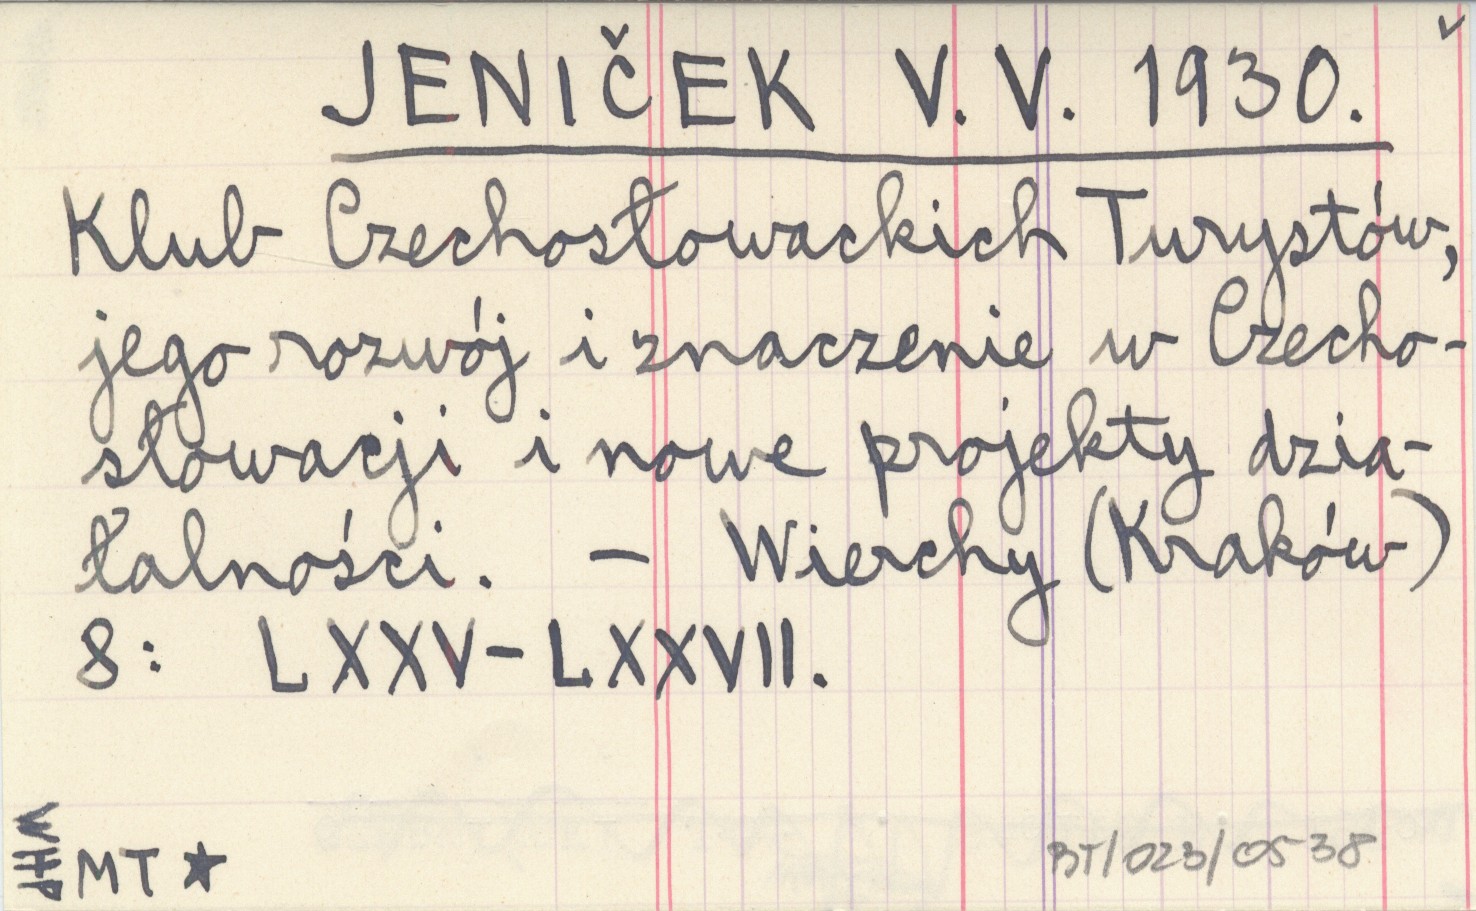 JENIČEK V. V. 1930.
Klub Czechosłowackich Turystów,
jego rozwój i znaczenie w Czecho-
słowacji i nowe projekty dzia-
łalności. – Wierchy (Kraków)
8: LXXV-LXXVII.
WHP
MT ★
BT/023/05-38